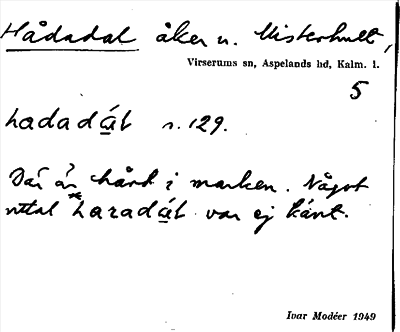 Hådadal åker n. Misterhult,
Virserums sn, Aspelands hd, Kalm. l.
5
hadadál s. 129.
Där är hård i marken. Något
uttal *haradál var ej känt.
Ivar Modéer 1949